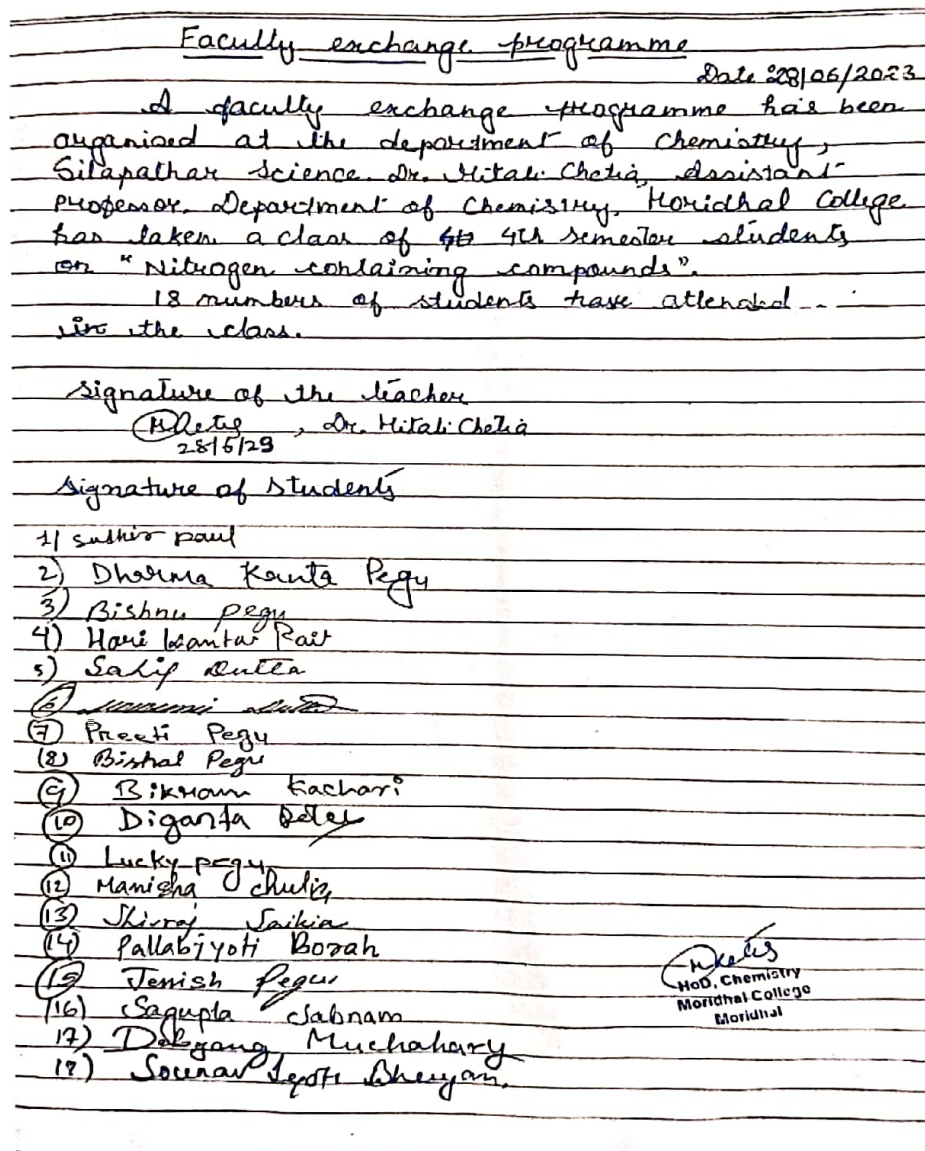 Faculty exchange programme
Date: 28/06/2023
A faculty exchange programme has been
organised at the department of Chemistry,
Silapathar Science. Dr. Mitali Chetia, Assistant
Professor, Department of Chemistry, Moridhal College
has taken a class of 4th semester students
on "Nitrogen containing compounds".
18 numbers of students have attended
in the class.
Signature of the teacher
, Dr. Mitali Chetia
Signature of Students
1) Sudhir paul
2) Dharma Kanta Pegu
3) Bishnu pegu
4) Hari
5) Dutta
6
7 Preeti Pegu
(8) Bishal Pegu
9 Bikram Kachari
10 Diganta
11 Lucky pegu
12 Manisha
(13) Shivraj Saikia
(14) Pallabjyoti Borah
15 Jenish Pegu
(16) Sagupta Sabnam
17) Muchahary
18) Sourav Jyoti Bhuyan.
HoD, Chemistry
Moridhal College
Moridhal